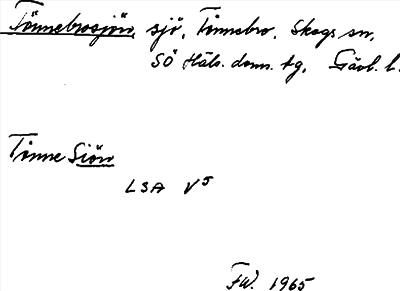 Tönnebrosjön, sjö, Tönnebro, Skogs sn,
SÖ Häls. doms. tg, Gävl. l.
Tinne Siön
LSA V5
FW. 1965